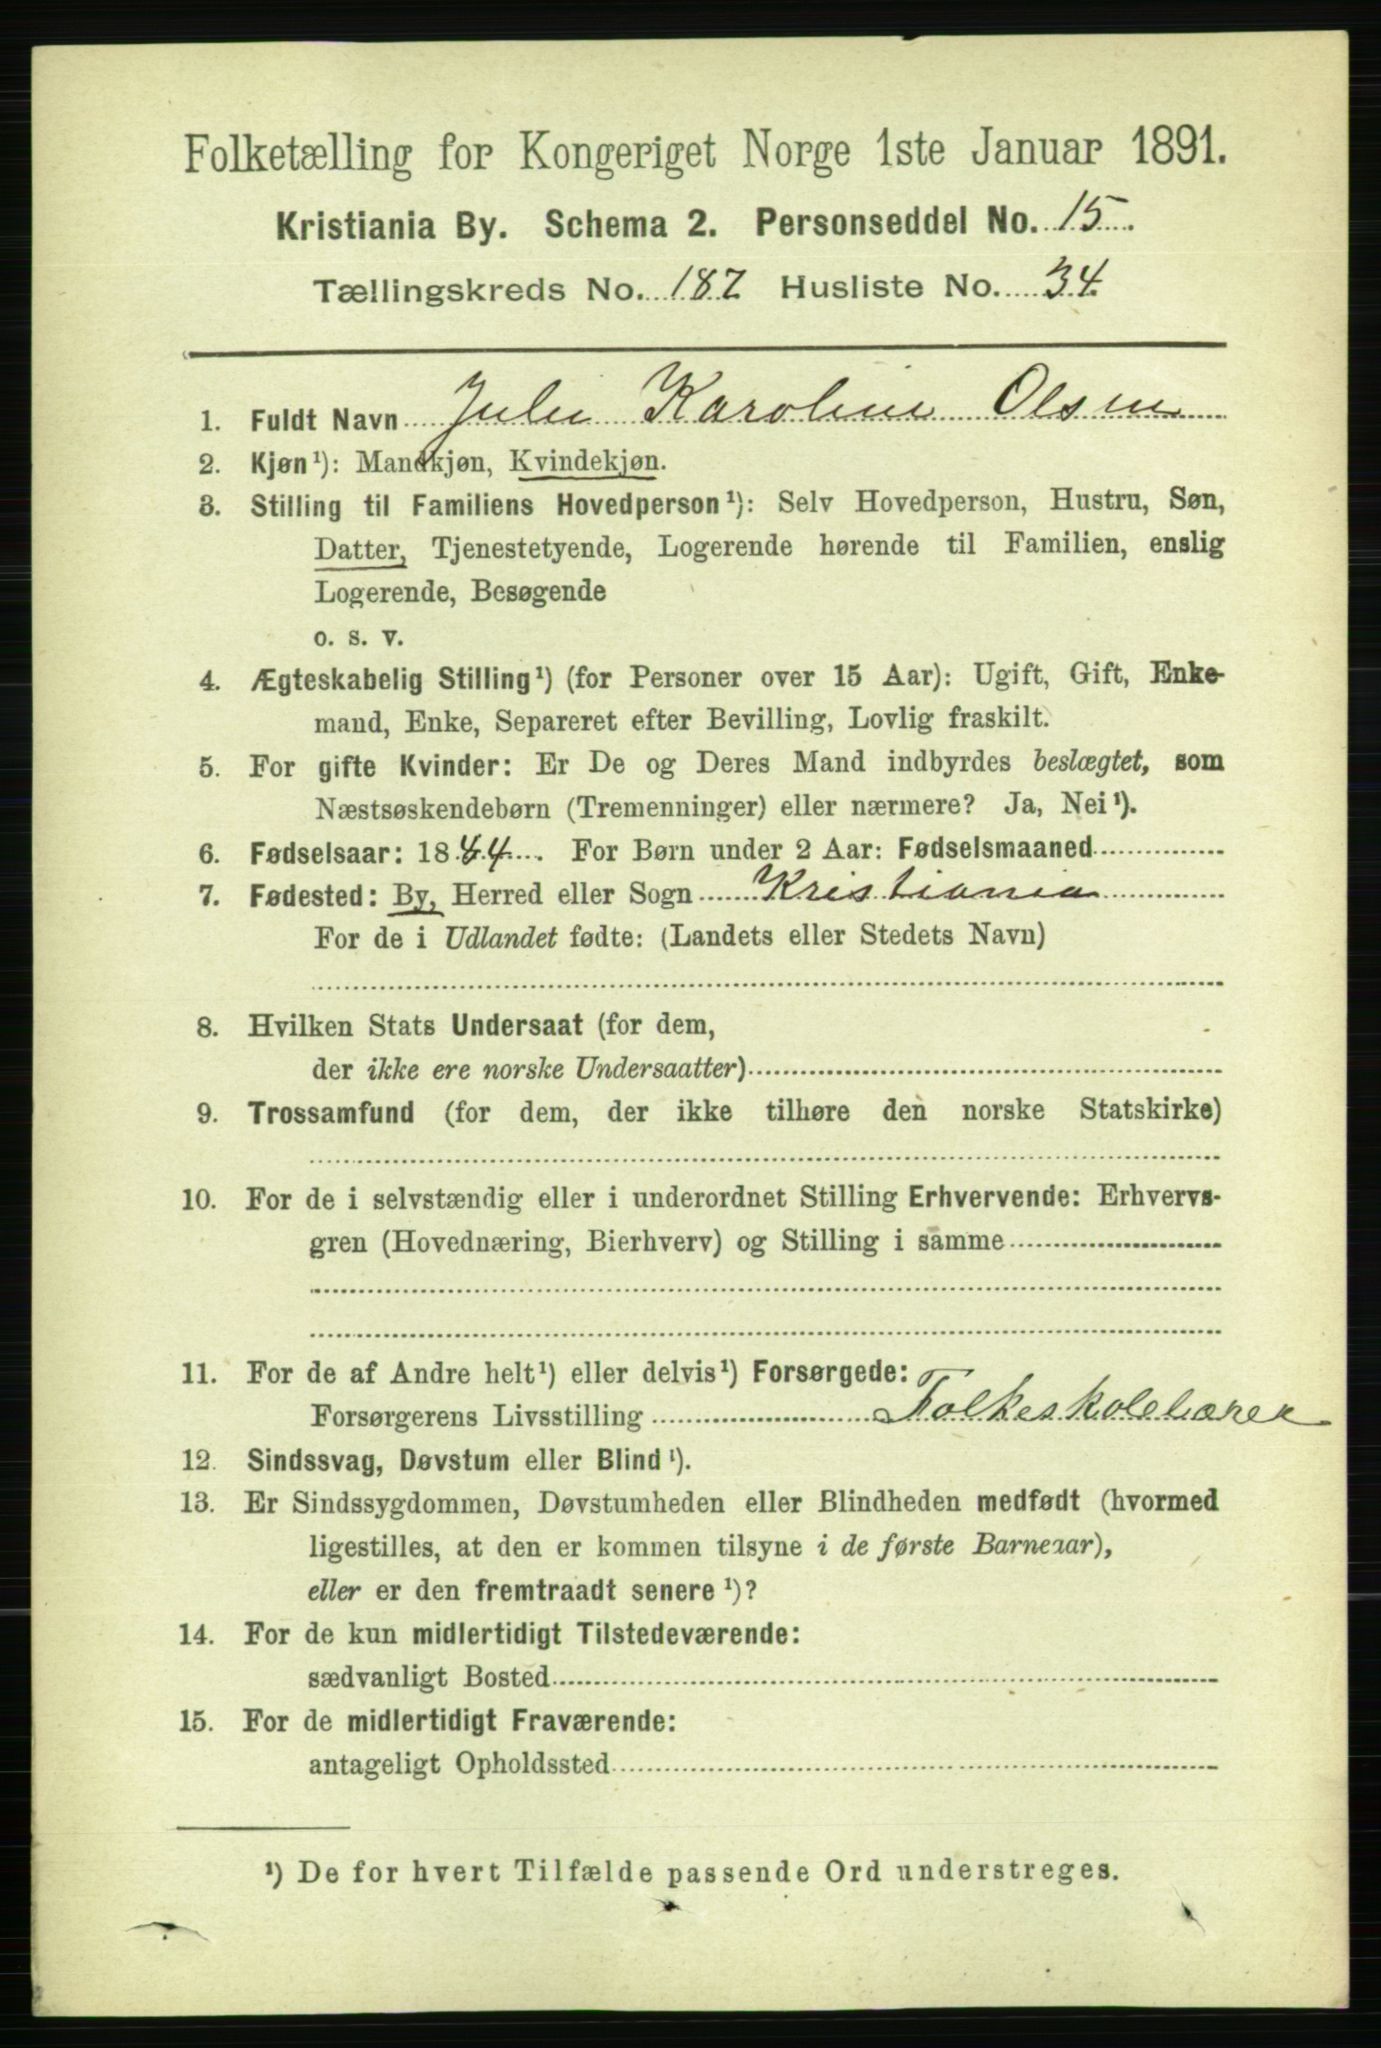 Folketælling for Kongeriget Norge 1ste Januar 1891.
Kristiania By. Schema 2. Personseddel No. 15.
Tællingskreds No. 187 Husliste No. 34
1. Fuldt Navn Julie Karoline Olsen
2. Kjøn¹): Mandkjøn, Kvindekjøn.
3. Stilling til Familiens Hovedperson¹): Selv Hovedperson, Hustru, Søn,
Datter, Tjenestetyende, Logerende hørende til Familien, enslig
Logerende, Besøgende
o. s. v.
4. Ægteskabelig Stilling¹) (for Personer over 15 Aar): Ugift, Gift, Enke-
mand, Enke, Separeret efter Bevilling, Lovlig fraskilt.
5. For gifte Kvinder: Er De og Deres Mand indbyrdes beslægtet, som
Næstsøskendebørn (Tremenninger) eller nærmere? Ja, Nei¹).
6. Fødselsaar: 1844. For Børn under 2 Aar: Fødselsmaaned
7. Fødested: By, Herred eller Sogn Kristiania
For de i Udlandet fødte: (Landets eller Stedets Navn)
8. Hvilken Stats Undersaat (for dem,
der ikke ere norske Undersaatter)
9. Trossamfund (for dem, der ikke tilhøre den norske Statskirke)
10. For de i selvstændig eller i underordnet Stilling Erhvervende: Erhvervs-
gren (Hovednæring, Bierhverv) og Stilling i samme
11. For de af Andre helt¹) eller delvis¹) Forsørgede:
Forsørgerens Livsstilling Folkeskolelærer
12. Sindssvag, Døvstum eller Blind¹).
13. Er Sindssygdommen, Døvstumheden eller Blindheden medfødt (hvormed
ligestilles, at den er kommen tilsyne i de første Barneaar),
eller er den fremtraadt senere¹)?
14. For de kun midlertidigt Tilstedeværende:
sædvanligt Bosted
15. For de midlertidigt Fraværende:
antageligt Opholdssted
¹) De for hvert Tilfælde passende Ord understreges.